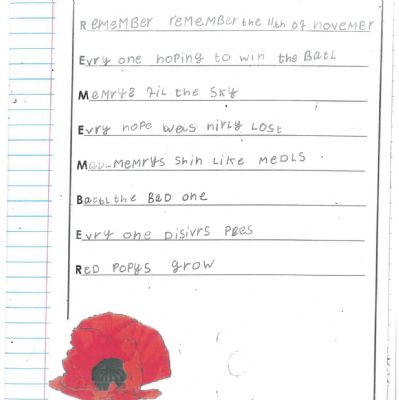 Remember remember the 11th of november
Evry one hoping to win the Batl
Memrys fil the sky
Evry hope was nirly lost
Memrys shin like medls
Battl the Bad one
Evry one disivrs pees
Red popys grow